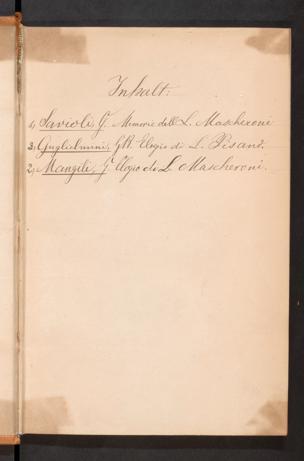 Inhalt:
1, Savioli, G. Memorie dell L. Mascheroni
3, Guglielmini, GB. Elogio di L. Pisano.
2, Mangili, G. Elogio di L Mascheroni.